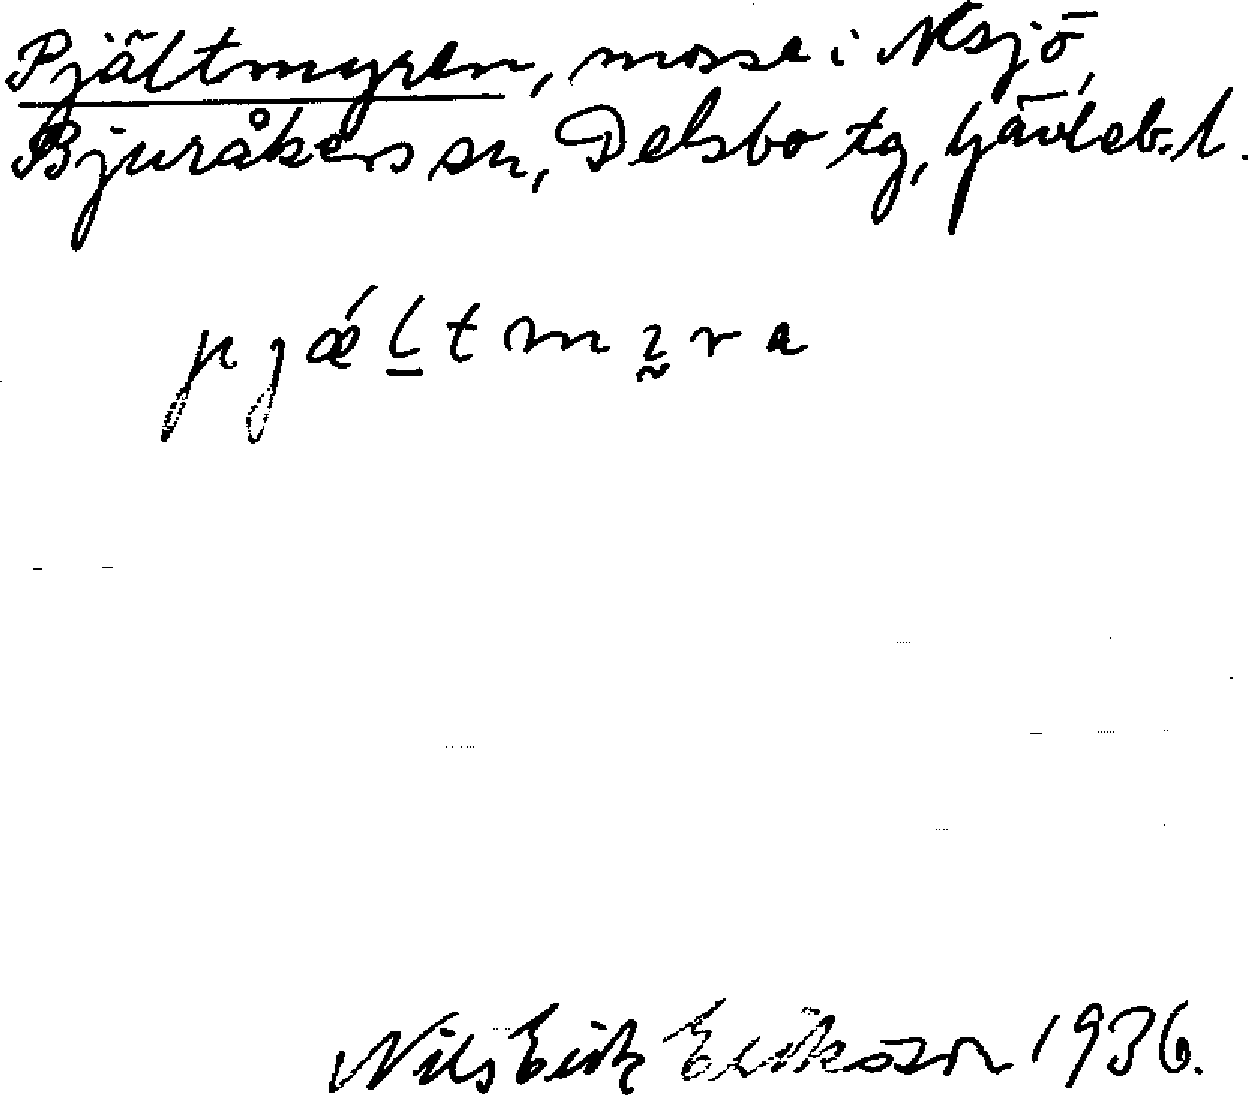 Pjältmyren, mosse i N Sjö,
Bjuråkers sn, Delsbo tg, Gävleb. l.
p j ǽ l̠ t m ɪ̰ r a
Nils Erik Eriksson 1936.